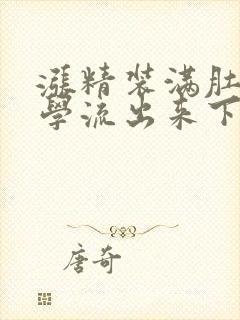 漲精装满肚
學流出来下
唐奇